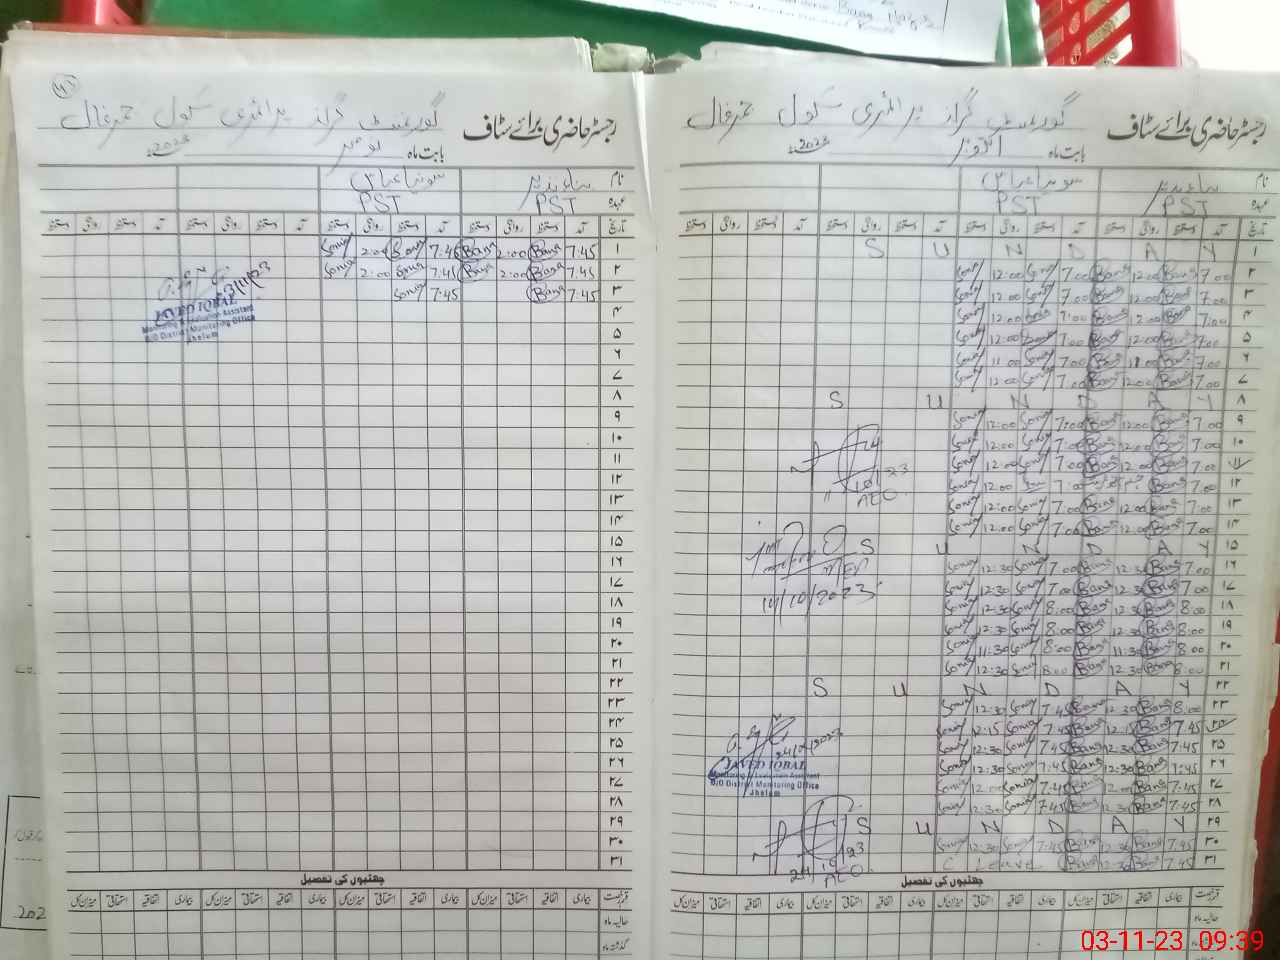 رجسٹر حاضری برائے سٹاف گورنمنٹ گرلز پرائمری سکول
بابت ماہ اکتوبر 2023ء
نام
سونیا عباس
عہدہ PST PST
تاریخ آمد دستخط روانگی دستخط آمد دستخط روانگی دستخط آمد دستخط روانگی دستخط آمد دستخط روانگی دستخط
۱ S U N D A Y
۲ 7:00 Bang 12:00 Bang 7:00 Sonia 12:00 Sonia
۳ 7:00 Bang 12:00 Bang 7:00 Sonia 12:00 Sonia
۴ 7:00 Bang 12:00 Bang 7:00 Sonia 12:00 Sonia
۵ 7:00 Bang 12:00 Bang 7:00 Sonia 12:00 Sonia
۶ 7:00 Bang 11:00 Bang 7:00 Sonia 11:00 Sonia
۷ 7:00 Bang 12:00 Bang 7:00 Sonia 12:00 Sonia
۸ S U N D A Y
۹ 7:00 Bang 12:00 Bang 7:00 Sonia 12:00 Sonia
۱۰ 7:00 Bang 12:00 Bang 7:00 Sonia 12:00 Sonia
۱۱ 7:00 Bang 12:00 Bang 7:00 Sonia 12:00 Sonia
۱۲ 7:00 Bang 7:00 Sonia 12:00 Sonia
۱۳ 7:00 Bang 12:00 Bang 7:00 Sonia 12:00 Sonia
۱۴ 7:00 Bang 12:00 Bang 7:00 Sonia 12:00 Sonia
۱۵ S U N D A Y
۱۶ 7:00 Bang 12:30 Bang 7:00 Sonia 12:30 Sonia
۱۷ 7:00 Bang 12:30 Bang 7:00 Sonia 12:30 Sonia
۱۸ 8:00 Bang 12:30 Bang 8:00 Sonia 12:30 Sonia
۱۹ 8:00 Bang 12:30 Bang 8:00 Sonia 12:30 Sonia
۲۰ 8:00 Bang 11:30 Bang 8:00 Sonia 11:30 Sonia
۲۱ 8:00 Bang 12:30 Bang 8:00 Sonia 12:30 Sonia
۲۲ S U N D A Y
۲۳ 8:00 Bang 12:30 Bang 7:45 Sonia 12:30 Sonia
۲۴ 7:45 Bang 12:15 Bang 7:45 Sonia 12:15 Sonia
۲۵ 7:45 Bang 12:30 Bang 7:45 Sonia 12:30 Sonia
۲۶ 7:45 Bang 12:30 Bang 7:45 Sonia 12:30 Sonia
۲۷ 7:45 Bang 12:00 Bang 7:45 Sonia 12:00 Sonia
۲۸ 7:45 Bang 12:30 Bang 7:45 Sonia 12:30 Sonia
۲۹ S U N D A Y
۳۰ 7:45 Bang 12:30 Bang 7:45 Sonia 12:30 Sonia
۳۱ 7:45 Bang 12:30 Bang C Leave
11/10/23
AEO.
14/10/2023
24/10/2023
JAVED IQBAL
Monitoring & Evaluation Assistant
O/O District Monitoring Office
Jhelum
24/10/23
AEO
چھٹیوں کی تفصیل
بیماری اتفاقیہ استحقاقی میزان کل بیماری اتفاقیہ استحقاقی میزان کل بیماری اتفاقیہ استحقاقی میزان کل بیماری اتفاقیہ استحقاقی میزان کل
حالیہ ماہ
گذشتہ ماہ
رجسٹر حاضری برائے سٹاف گورنمنٹ گرلز پرائمری سکول
بابت ماہ نومبر 2023ء
نام
سونیا عباس
عہدہ PST PST
تاریخ آمد دستخط روانگی دستخط آمد دستخط روانگی دستخط آمد دستخط روانگی دستخط آمد دستخط روانگی دستخط
۱ 7:45 Bang 2:00 Bang 7:45 Sonia 2:00 Sonia
۲ 7:45 Bang 2:00 Bang 7:45 Sonia 2:00 Sonia
۳ 7:45 Bang 7:45 Sonia
۴
۵
۶
۷
۸
۹
۱۰
۱۱
۱۲
۱۳
۱۴
۱۵
۱۶
۱۷
۱۸
۱۹
۲۰
۲۱
۲۲
۲۳
۲۴
۲۵
۲۶
۲۷
۲۸
۲۹
۳۰
۳۱
3/11/23
JAVED IQBAL
Monitoring & Evaluation Assistant
O/O District Monitoring Office
Jhelum
چھٹیوں کی تفصیل
بیماری اتفاقیہ استحقاقی میزان کل بیماری اتفاقیہ استحقاقی میزان کل بیماری اتفاقیہ استحقاقی میزان کل بیماری اتفاقیہ استحقاقی میزان کل
حالیہ ماہ
گذشتہ ماہ
202
03-11-23 09:39